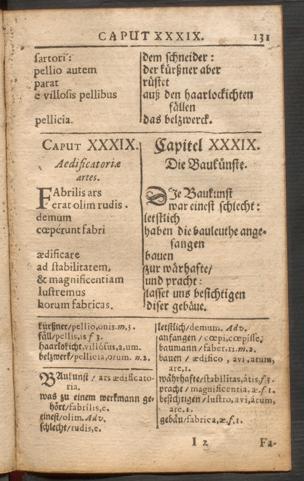 CAPUT XXXIX. 131
sartori:
pellio autem
parat
e villosis pellibus
pellicia.
dem schneider:
der kürßner aber
rüstet
auß den haarlockichten
fällen
das belzwerck.
CAPUT XXXIX.
Aedificatoriæ
artes.
FAbrilis ars
erat olim rudis.
demum
cœperunt fabri
ædificare
ad stabilitatem,
& magnificentiam
lustremus
horum fabricas.
Capitel XXXIX.
Die Baukünste.
DJe Baukunst
war einest schlecht:
letstlich
haben die bauleuthe ange-
fangen
bauen
zur wärhafte/
und pracht:
lasset uns besichtigen
diser gebäue.
kürßner/pellio,onis.m.3.
fäll/pellis,is f 3.
haarlokicht.villósus,a,um.
belzwerk/pellicia,orum. n.2.
BAukunst / ars ædificato-
ria.
was zu einem werkmann ge-
hört/fabrilis,e.
einest/olim. Adv.
schlecht/rudis,e.
letstlich/demum. Adv.
anfangen / cœpi,cœpisse.
baumann / faber.ri.m.2.
bauen / ædifico, avi, atum,
are.1.
währhafte/stabilitas,átis,f 3.
pracht / magnificentia, æ.f.1.
besichtigen / lustro,avi,átum,
are.1.
gebäu/fabrica,æ.f.1.
I 2 Fa-